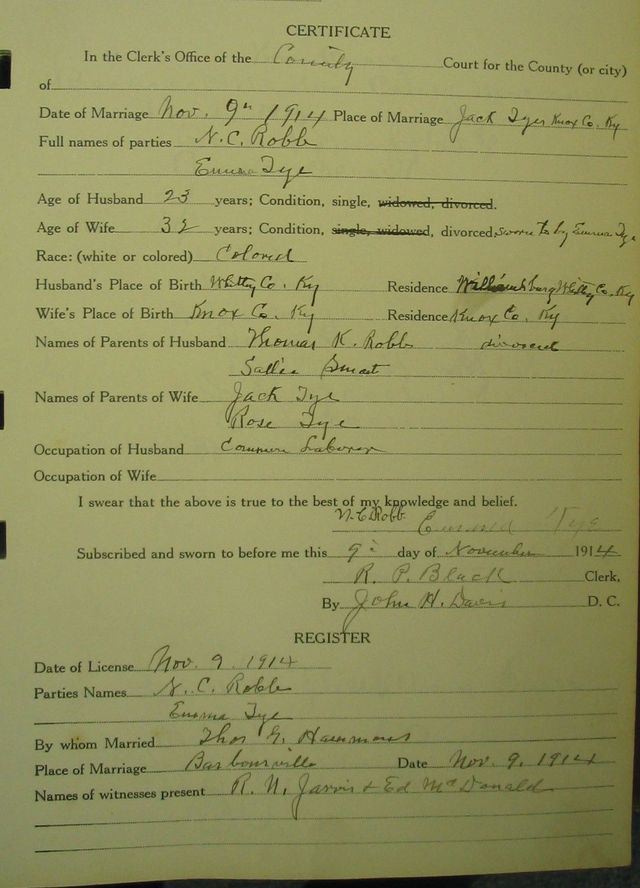 CERTIFICATE
In the Clerk's Office of the County Court for the County (or city)
of
Date of Marriage Nov. 9th 1914 Place of Marriage Jack Tyes Knox Co. Ky
Full names of parties N. C. Robb
Emma Tye
Age of Husband 23 years; Condition, single, widowed, divorced.
Age of Wife 32 years; Condition, single, widowed, divorced, sworn to by Emma Tye
Race: (white or colored) Colored
Husband's Place of Birth Whitley Co. Ky Residence Williamsburg Whitley Co. Ky
Wife's Place of Birth Knox Co. Ky Residence Knox Co. Ky
Names of Parents of Husband Thomas K. Robb divorced
Sallie Smart
Names of Parents of Wife Jack Tye
Rose Tye
Occupation of Husband Common Laborer
Occupation of Wife
I swear that the above is true to the best of my knowledge and belief.
N. C. Robb Emma Tye
Subscribed and sworn to before me this 9th day of November 1914
R. P. Black Clerk,
By John H. Davis D. C.
REGISTER
Date of License Nov. 9. 1914
Parties Names N. C. Robb
Emma Tye
By whom Married Thos G. Hammons
Place of Marriage Barbourville Date Nov. 9, 1914
Names of witnesses present R. N. Jarvis & Ed McDonald